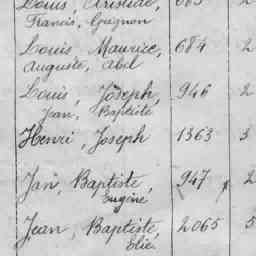 Louis, Aristide, 685 2
Francis, Guignon
Louis Maurice, 684 2
Auguste, Abel
Louis, Joseph, 946 2
Jean, Baptiste
Henri, Joseph 1363 3
Jan, Baptiste, 947, 2
Eugène
Jean, Baptiste, 2065 5
Elie.